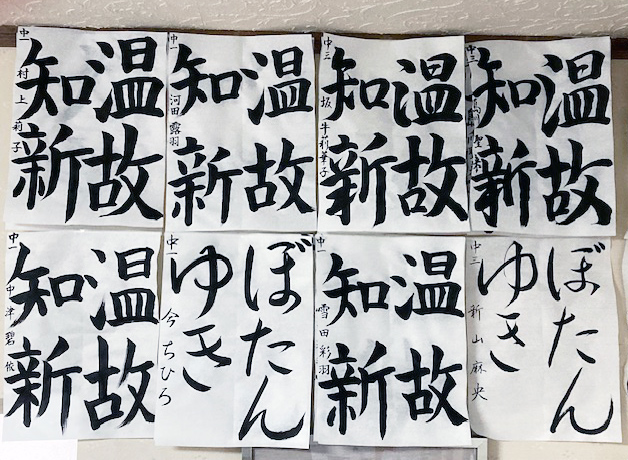 温故
知新
中一 村上 莉子
温故
知新
中一 河田 露羽
温故
知新
中三 坂牛莉華子
温故
知新
中三
温故
知新
中一 中津 碧依
ぼたん
ゆき
中一 今ちひろ
温故
知新
中一 雪田彩羽
ぼたん
ゆき
中三 新山麻央